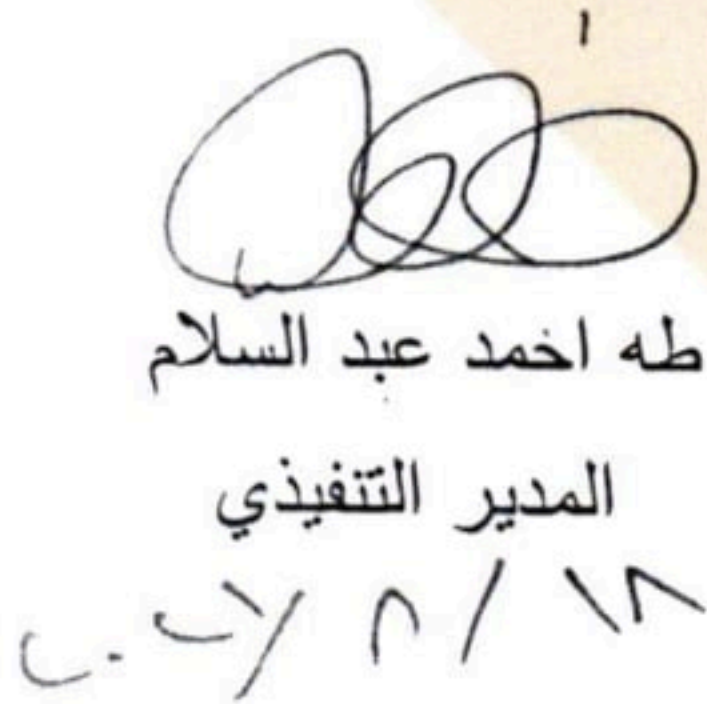 طه اخمد عبد السلام
المدير التنفيذي
١٨ / ٨ / ٢٠٢١